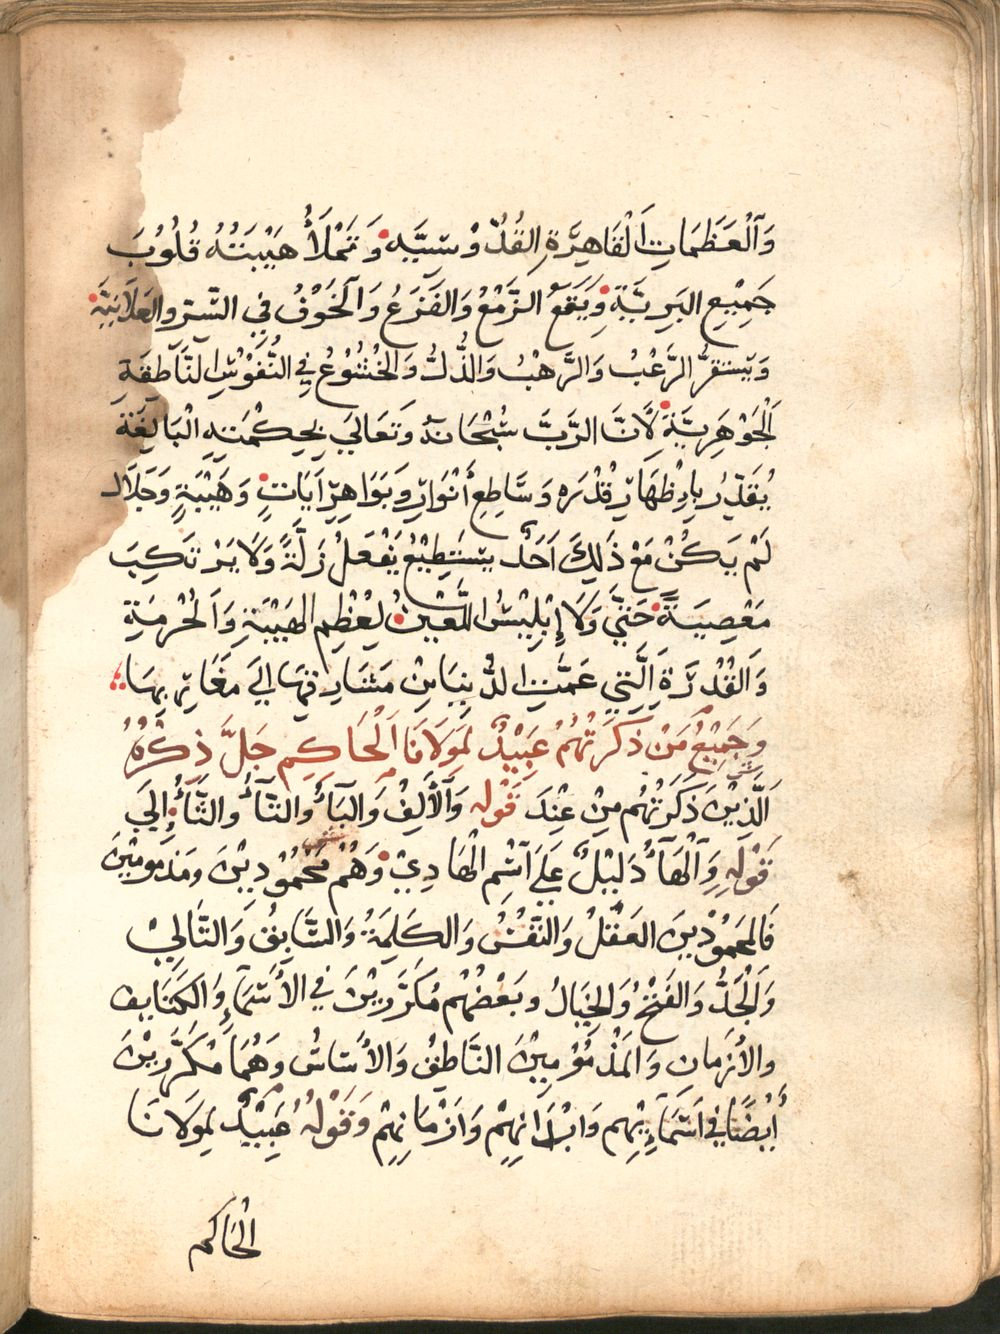 وَٱلْعَظَمَاتِ اَلْقَاهِرَةِ القُدُّوْسِيَّه وَتَمْلَأُ هَيْبَتُهُ قُلُوُبَ
جَمِيْعِ البَرِيَّةِ وَيَقَعُ الزَّمْعُ وَالفَزَعُ وَالخَوْفُ فِي السِّرِ والعَلَانِيَّةِ
وَيَسْتَقرُّ الرَّعْبُ وَالرَّهْبُ وَالذُّلُّ وَالخُشُوْعُ فِي النُّفُوْسِ النَّاطِقَةِ
اَلْجَوْهَرِيَّةِ لَانَّ الرَّبَّ سُبْحَانَهُ وَتَعَالَى بِحِكْمَتِهِ الْبَالِغَةِ
يُقَدِّرُ بِاِظْهَارِ قُدْرَه وَسَّاطِعِ أَنْوَارٍ وبَوَاهِرِ اَيَاتٍ وَهَيْبَةٍ وَجَلَال
لَمْ يَكُنْ مَعْ ذَلِكَ اَحَدٌ يَسْتَطِيْعُ يَفْعَلُ زَلَّةً وَلَا يَرْتَكِبَ
مَعْصِيَةً حَتَّي وَلَا إِبْلِيْسُ اللَّعِيْنُ لِعُظْمِ الهَيْبَةِ وَاَلحُرْمَةِ
وَاَلقُدْرَةِ اَلَّتِي عَمَّتِ الدُّنِيَا مِنْ مَشَارِقِهَا إِلَى مَغَارِبِهَا
وَجَمِيْعُ مَنْ ذَكَرْتُهُمْ عَبِيْدٌ لِمَولَانَا اَلْحَاكِمِ جَلَّ ذِكْرُهُ
اَلَّذِيْنَ ذَكَرْتُهُم مِنْ عِنْدَ قَوْلِه وَٱلأَلِفْ وَالبَآءُ والتَآءُ والثَآءُ إِلَي
قَوْلِهِ وَٱلْهَآءُ دَلِيْلٌ عَلَى اَسْمِ الهَادِيْ وَهُمْ مَحْمُوْدِيْنَ ومَذمومِيْنَ
فَالمَحمُوْدْيِنَ العَقْلُ وَالنَّفْسُ وَالكَلِمَةُ وَالسَّابِقُ وَالتَّالِيْ
وَاَلْجَدُّ وَالفَتْحُ وَالخَيَالُ وبَعْضُهُم مُكَرَّرِيْنَ فِي الأَسْمَآءِ وَالكَتَايِفِ
والأَزمَانِ وَالمَذْمُوْمِيْنَ النَّاطِقُ وَالأَسَاسُ وَهُمَا مُكَرَّرِيْنَ
أَيْضًا في اَسْمَآءِيْهِم وَابْدَانِهِمْ وَاَزْمَانِهِمْ وَقَوْلُهُ عَبِيْدٌ لِمَولَانَا
الْحَاكم